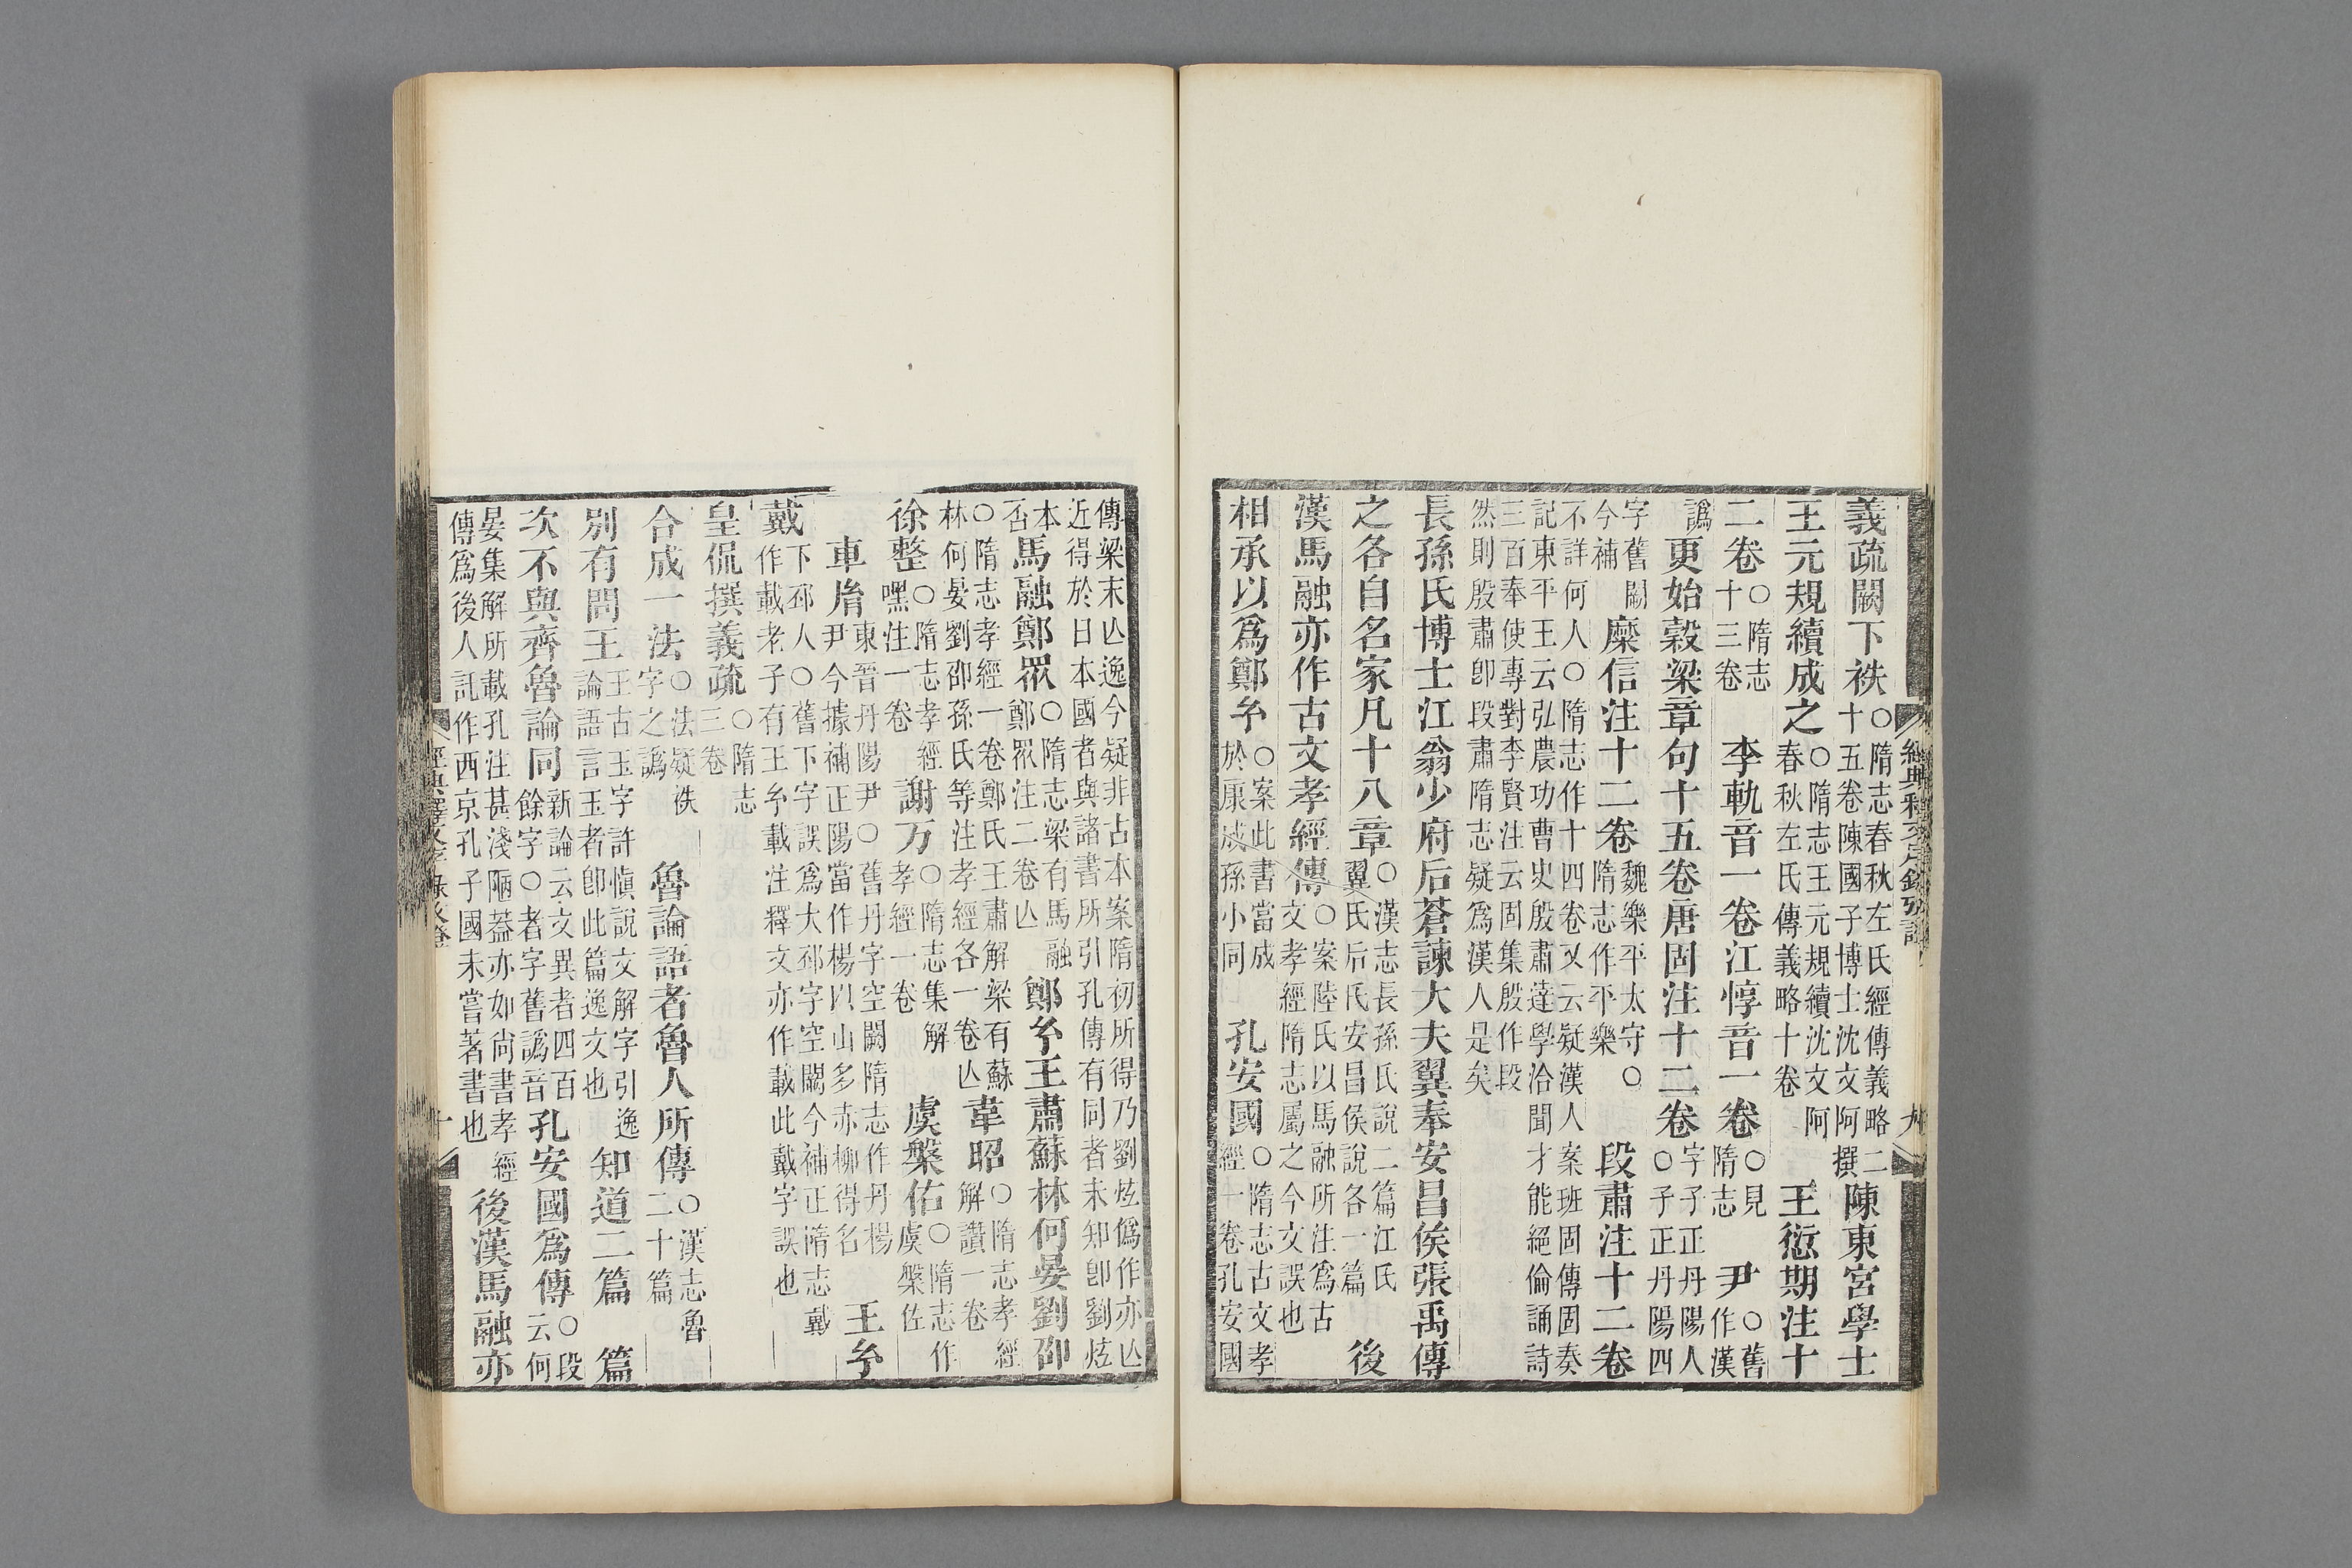 義疏闕下袟○隋志春秋左氏經傳義略二十五卷陳國子博士沈文阿撰陳東宮學士
王元規續成之○隋志王元規續沈文阿春秋左氏傳義略十卷王愆期注十
二卷○隋志十三卷李軌音一卷江惇音一卷○見隋志尹○舊作漢
譌更始穀梁章句十五卷唐固注十二卷○字子正丹陽人子正丹陽四
字舊闕今補糜信注十二卷魏樂平太守○隋志作平樂段肅注十二卷
不詳何人○隋志作十四卷又云疑漢人案班固傳固奏記東平王云弘農功曹史殷肅達學洽聞才能絕倫誦詩
三百奉使專對李賢注云固集殷作段然則殷肅卽段肅隋志疑爲漢人是矣
長孫氏博士江翁少府后蒼諫大夫翼奉安昌侯張禹傳
之各自名家凡十八章○漢志長孫氏說二篇江氏翼氏后氏安昌侯說各一篇後
漢馬融亦作古文孝經傳○案陸氏以馬融所注爲古文孝經隋志屬之今文誤也
相承以爲鄭𤣥○案此書當成於康成孫小同孔安國○隋志古文孝經一卷孔安國
傳梁末亾逸今疑非古本案隋初所得乃劉炫僞作亦亾近得於日本國者與諸書所引孔傳有同者未知卽劉炫
本否馬融鄭眾○隋志梁有馬融鄭眾注二卷亾鄭𤣥王肅蘇林何晏劉邵
○隋志孝經一卷鄭氏王肅解梁有蘇林何晏劉邵孫氏等注孝經各一卷亾韋昭○隋志孝經解讚一卷
徐整○隋志孝經嘿注一卷謝万○隋志集解孝經一卷虞槃佑○隋志作虞槃佐
車胤東晉丹陽尹○舊丹字空闕隋志作丹楊尹今據補正陽當作楊以山多赤柳得名王𤣥
戴下邳人○舊下字誤爲大邳字空闕今補正隋志戴作載老子有王𤣥載注釋文亦作載此戴字誤也
皇侃撰義疏○隋志三卷
合成一法○法疑袟字之譌魯論語者魯人所傳○漢志魯二十篇
別有問王王古玉字許愼說文解字引逸論語言玉者卽此篇逸文也知道二篇篇
次不與齊魯論同新論云文異者四百餘字○者字舊譌音孔安國爲傳○段云何
晏集解所載孔注甚淺陋葢亦如尙書孝經傳爲後人託作西京孔子國未嘗著書也後漢馬融亦